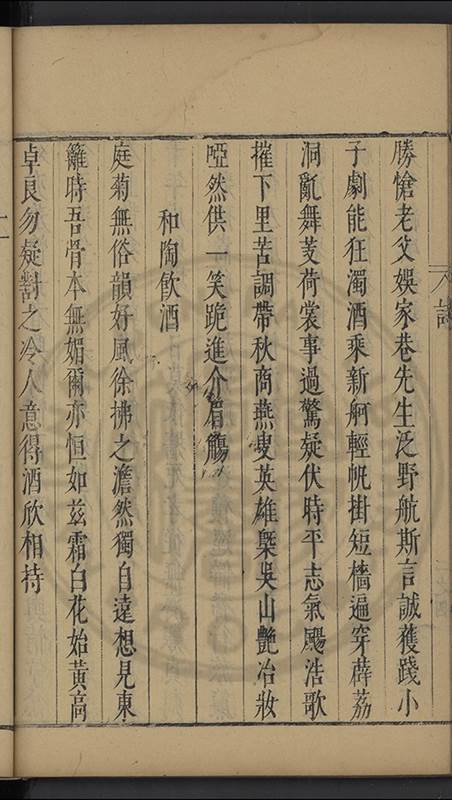 勝愴老父娛家巷先生泛野航斯言誠獲踐小
子劇能狂濁酒乘新舸輕帆掛短檣遍穿薜荔
洞亂舞芰荷裳事過驚疑伏時平志氣颺浩歌
摧下里苦調帶秋商燕叟英雄槩吳山艷冶妝
啞然供一笑跪進介眉觴
和陶飲酒
庭菊無俗韻好風徐拂之澹然獨自遠想見東
籬時吾骨本無媚爾亦恒如茲霜白花始黃高
卓良勿疑對之冷人意得酒欣相持